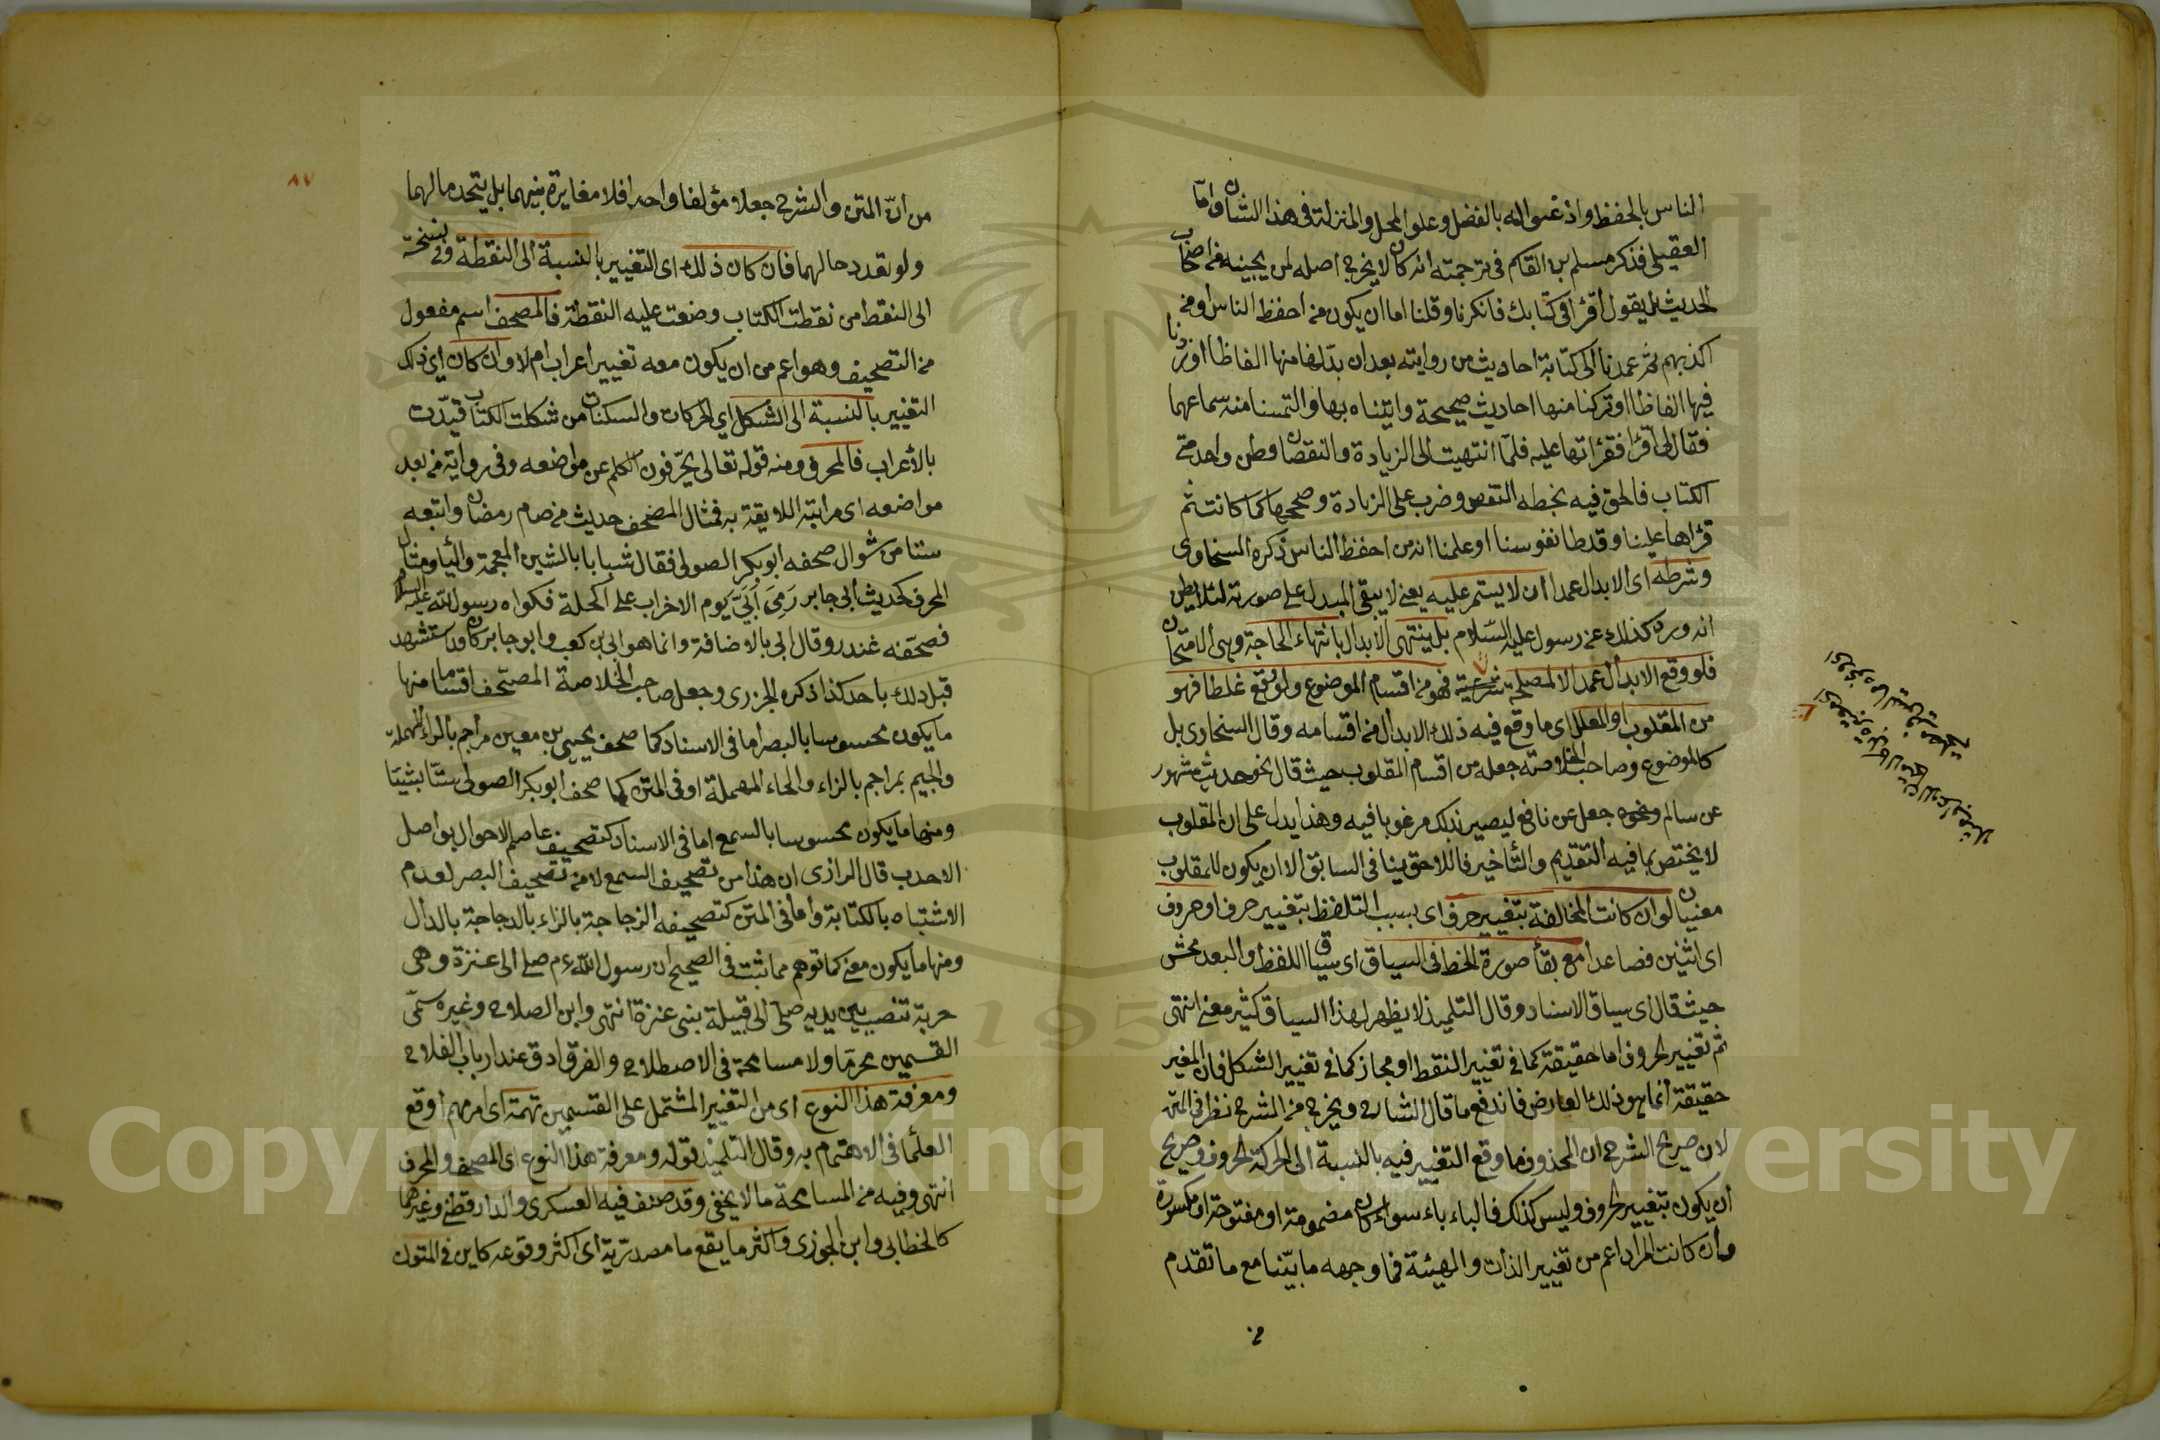 الناس بالحفظ واذعنوا له بالفضل وعلو المحل والمنزلة في هذا الشان واما
العقيلى فذكر مسلم بن القاسم فى ترجمته انه كان لا يخرج اصله لمن يجيئه من اصحاب
الحديث بل يقول اقرأ فى كتابك فانكرنا وقلنا اما ان يكون من احفظ الناس او من
اكذبهم ثم عمدنا الى كتابة احاديث من روايته بعد ان بدلنا منها الفاظا او زدنا
فيها الفاظا او تركنا منها احاديث صحيحة واتيناه بها والتمسنا منه سماعها
فقال لى اقرأ فقرأتها عليه فلما انتهيت الى الزيادة والنقصان وطن واحد منه
الكتاب فالحق فيه بخطه النقص وضرب على الزيادة وصححها كما كانت ثم
قرأها علينا وقد طا نفوسنا او علمنا انه من احفظ الناس ذكره السخاوى
وشرطه اى الابدال عمدا ان لا يستمر عليه يعنى لا يبقى المبدل على صورته لئلا يظن
انه ورد كذلك عن رسول عليه السلام بل ينتهى الابدال بانتهاء الحاجة وهى الامتحان
فلو وقع الابدال عمدا لا لمصلحة شرعية فهو من اقسام الموضوع ولو وقع غلطا فهو
من المقلوب او المعلل اى ما وقع فيه ذلك الابدال من اقسامه وقال السخاوى بل
كالموضوع وصاحب الخلاصة جعله من اقسام المقلوب حيث قال نحو حديث مشهور
عن سالم ونحوه جعل عن نافع ليصير بذلك مرغوبا فيه وهذا يدل على ان المقلوب
لا يختص بما فيه التقديم والتأخير فاللاحق ينافى السابق الا ان يكون للمقلوب
معنيان او ان كانت المخالفة بتغيير حرف اى بسبب التلفظ بتغيير حرف او حروف
اى اثنين فصاعدا مع بقأ صورة الخط فى السياق اى سياق اللفظ وابعد محش
حيث قال اى سياق الاسناد وقال التلميذ لا يظهر لهذا السياق كثير معنى انتهى
ثم تغيير الحروف اما حقيقة كما فى تغيير النقط او مجاز كما فى تغيير الشكل فان المغير
حقيقة انما هو ذلك العارض فاندفع ما قال الشارح ويخرج من الشرح نظر فى المتن
لان صريح الشرح ان المحذوف ما وقع التغيير فيه بالنسبة الى الحركة الحروف وصريح
ان يكون بتغيير الحروف وليس كذلك فالباء باء سواء كان مضمومة او مفتوحة او مكسورة
وان كانت المراد اعم من تغيير الذات والهيئة فما وجهه ما بينا مع ما تقدم
من
من ان المتن والشرح جعلا مؤلفا واحدا فلا مغايرة بينهما بل يتحد مالهما
ولو تعدد حالهما فان كان ذلك اى التغيير بالنسبة الى النقطة وفى نسخة
الى النقط من نقطت الكتاب وضعت عليه النقطة فالمصحف اسم مفعول
من التصحيف وهو اعم من ان يكون معه تغيير اعراب ام لا وان كان اى ذلك
التغيير بالنسبة الى الشكل اى الحركات والسكنات من شكلت الكتاب قيدت
بالأعراب فالمحرف ومنه قوله تعالى يحرفون الكلم عن مواضعه وفى رواية من بعد
مواضعه اى مراتبه اللايقة به فمثال المصحف حديث من صام رمضان واتبعه
ستا من شوال صحفه ابو بكر الصولى فقال شيا بالشين المعجمة واليا ومثال
المحرف كحديث ابى جابر رمى ابى يوم الاحزاب على اكحله فكواه رسول الله عليه السلام
فصحفه غندر وقال ابى بالاضافة وانما هو ابى بن كعب وابو جابر كان قد استشهد
قبل ذلك باحد كذا ذكره الجزرى وجعل صاحب الخلاصة المصحف اقساما منها
ما يكون محسوسا بالبصر اما فى الاسناد كما صحف يحيى بن معين مراجم بالراء المهملة
والجيم بمزاحم بالزاء والحاء المهملة او فى المتن كما صحف ابو بكر الصولى ستا بشيئا
ومنها ما يكون محسوسا بالسمع اما فى الاسناد كتصحيف عاصم الاحول بواصل
الاحدب قال الرازى ان هذا من تصحيف السمع لا من تصحيف البصر لعدم
الاشتباه بالكتابة واما فى المتن كتصحيفه الزجاجة بالزاء بالدجاجة بالدال
ومنها ما يكون معنى كما توهم مما ثبت فى الصحيح ان رسول الله عم صلى الى عنزة وهى
حربة تنصب بين يديه صلى الى قبيلة بنى عنزة انتهى وابن الصلاح وغيره سمى
القسمين محرفا ولا مسامحة فى الاصطلاح والفرق ادق عند ارباب الفلاح
ومعرفة هذا النوع اى من التغيير المشتمل على القسمين مهمة اى امر مهم اوقع
العلما فى الاهتمام به وقال التلميذ قوله ومعرفة هذا النوع اى المصحف والمحرف
انتهى وفيه من المسامحة ما لا يخفى وقد صنف فيه العسكرى والدارقطنى وغيرهما
كالخطابى وابن الجوزى واكثر ما يقع ما مصدرية اى اكثر وقوعه كاين فى المتون
٨٧
Copyright © King Saud University
195